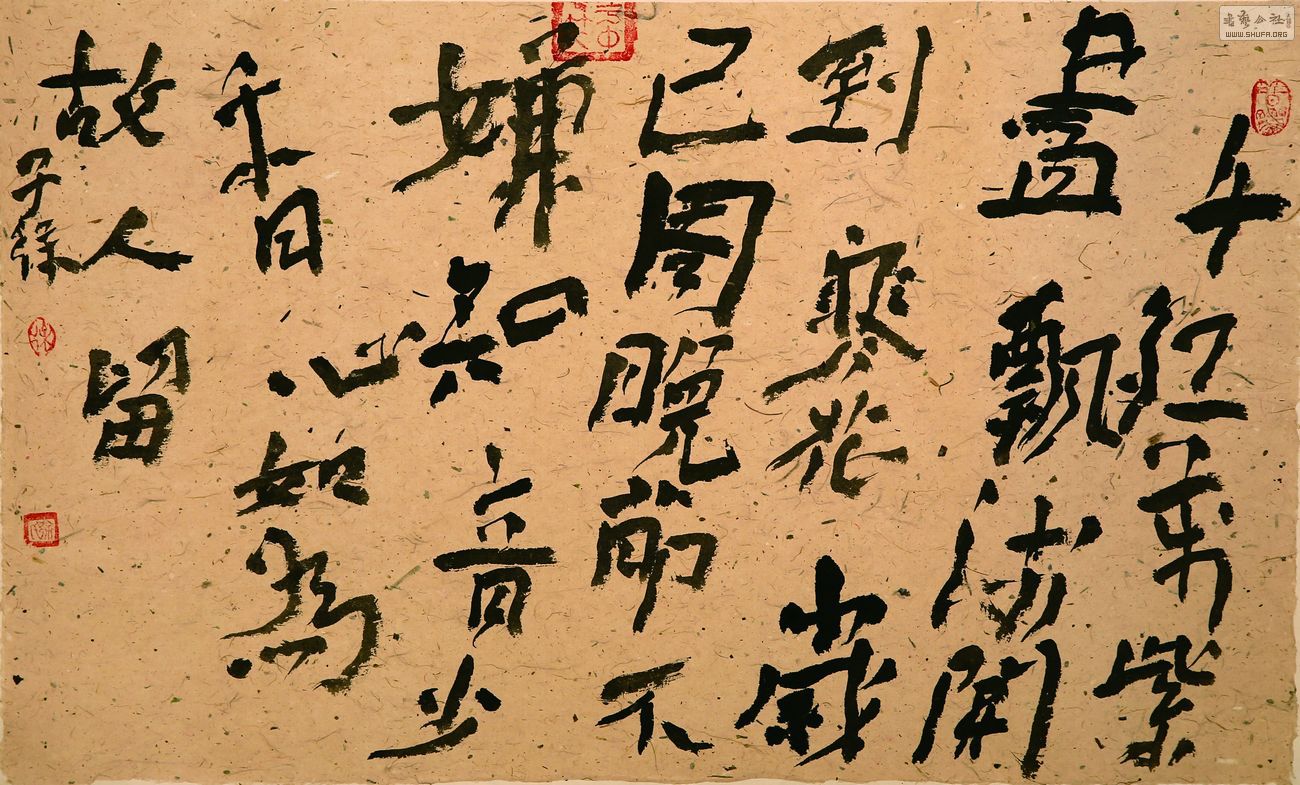 千紅萬紫
盡飄浮開
到寒花歲
已周晚節不
嫌知音少
香心如為
故人留
子
書藝公社
WWW.SHUFA.ORG